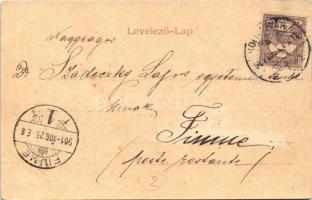 Levelező-Lap
Nagyságos
Dr Szádeczky Lajos egyetemi tanár
úrnak
Fiume
(poste restante)
FIUME
901 AUG 25